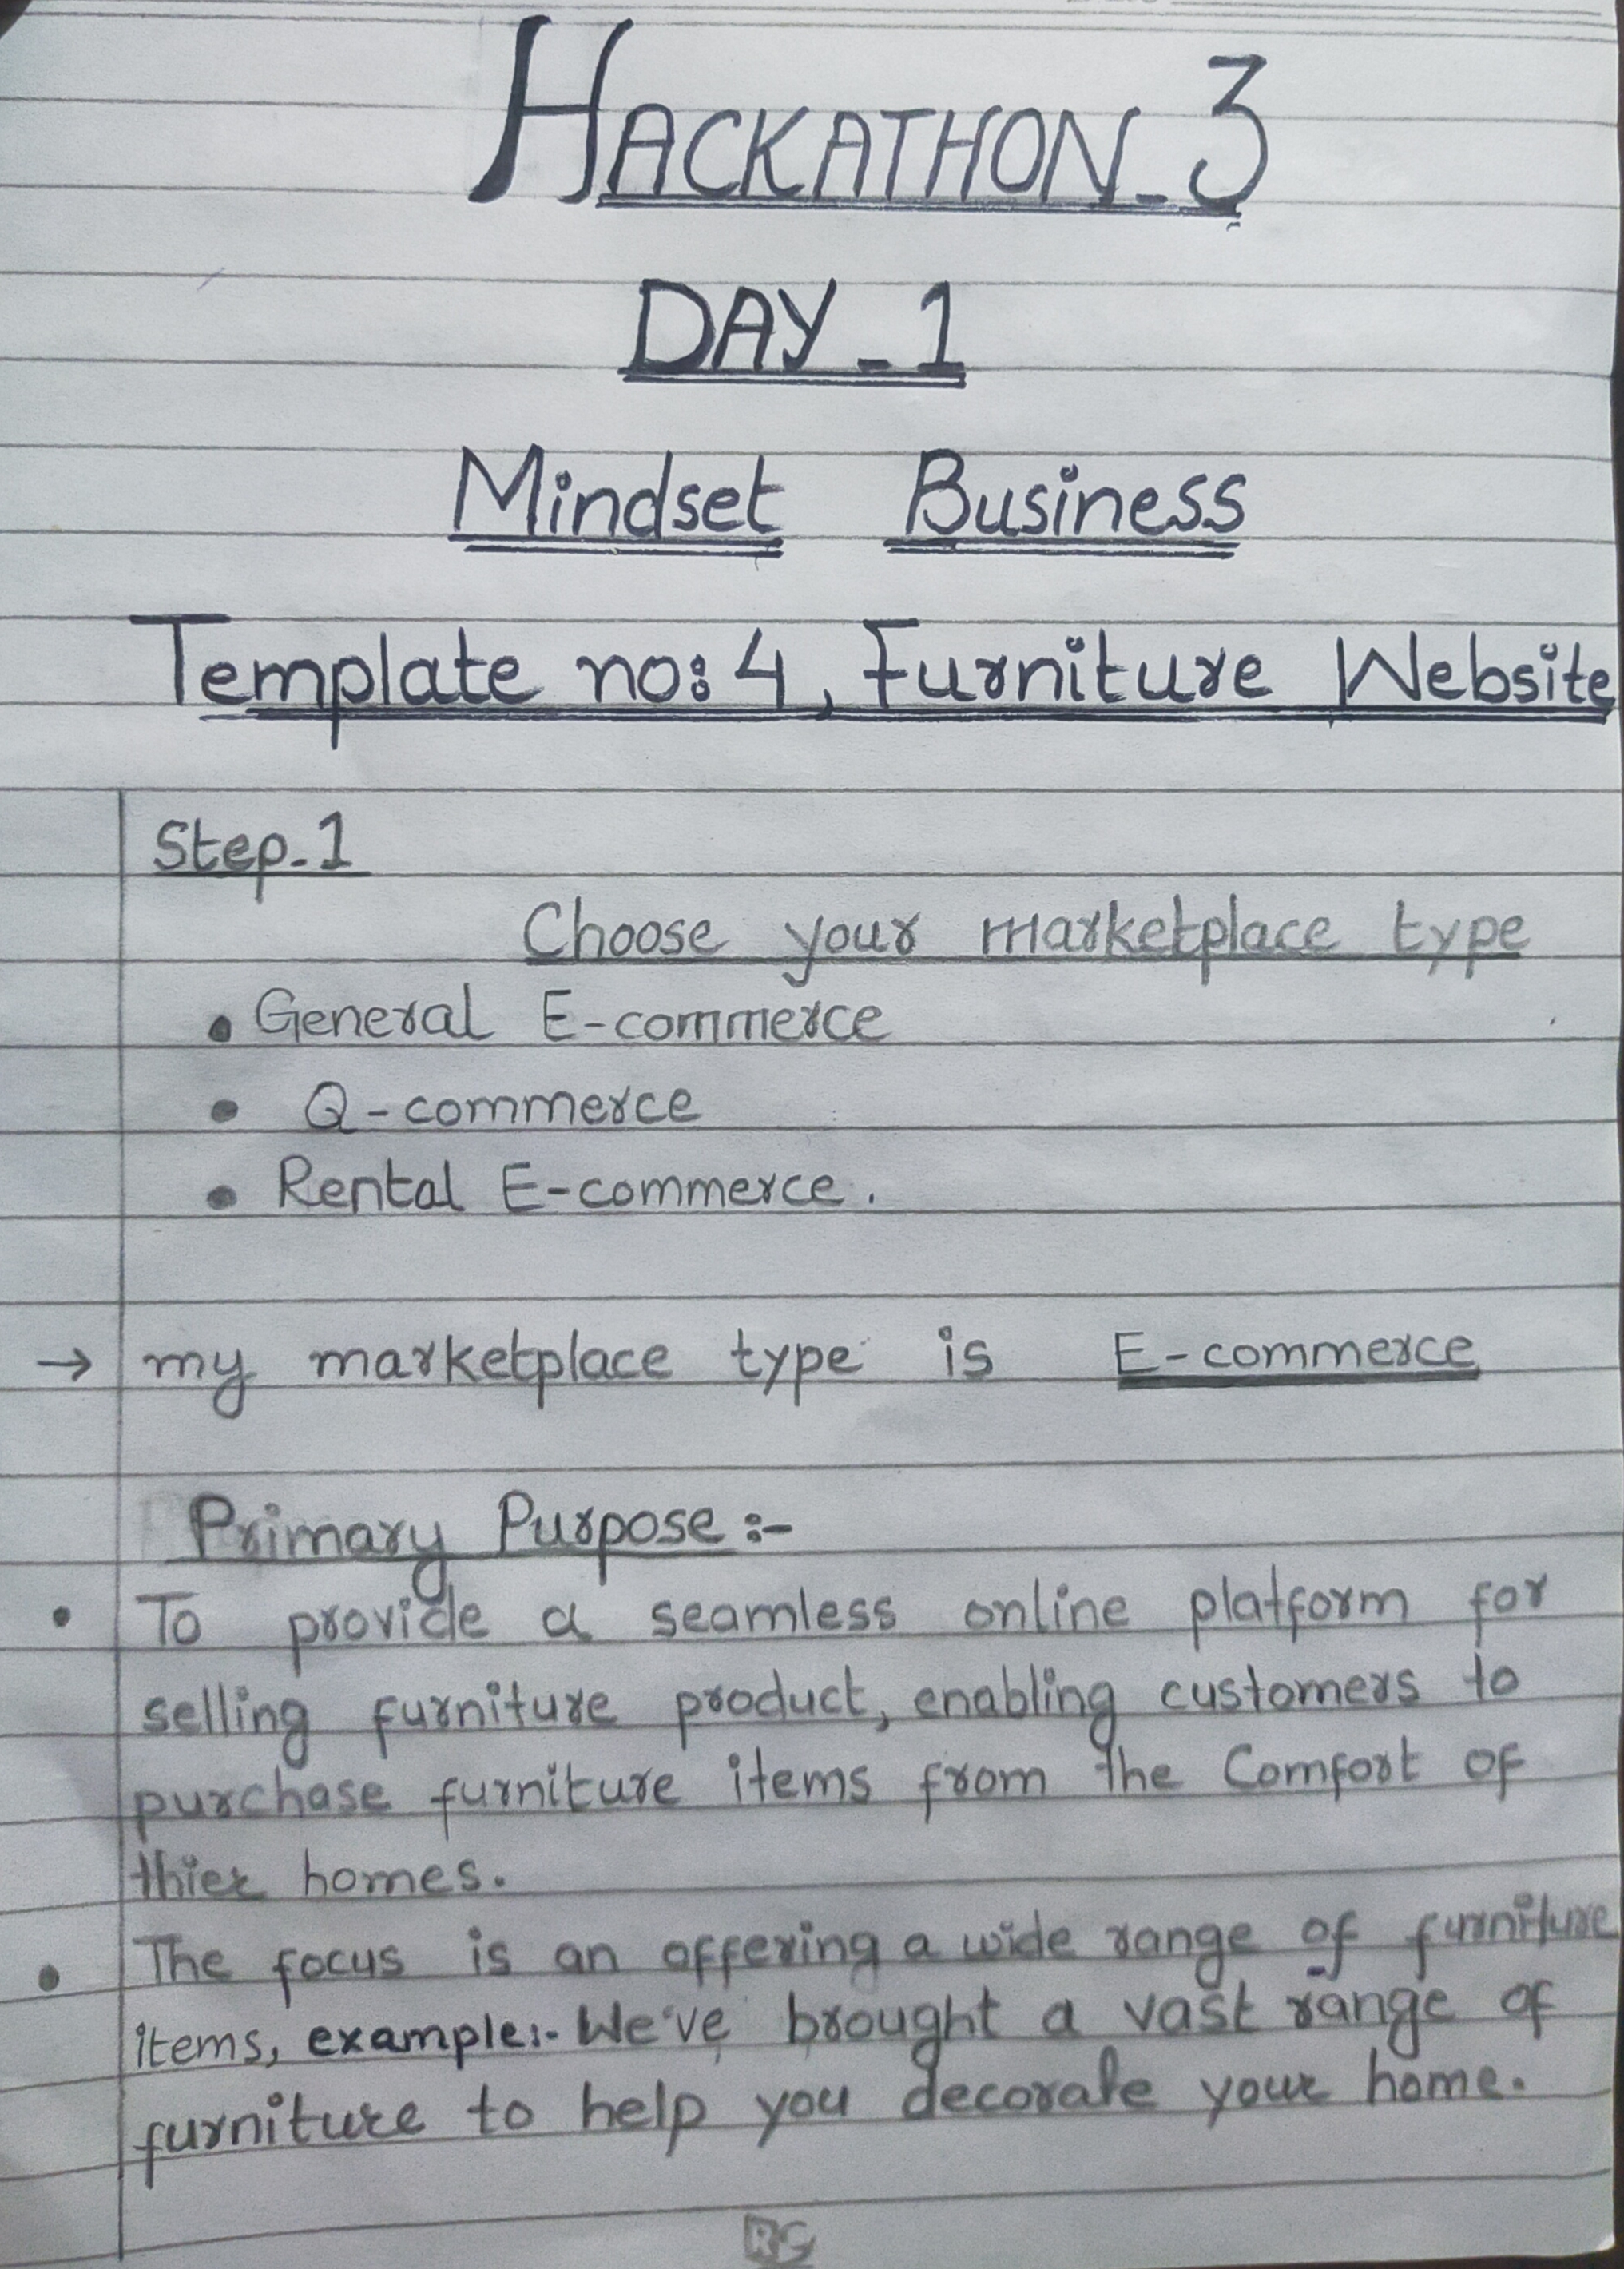 HACKATHON_3
DAY_1
Mindset Business
Template no:4, Furniture Website
Step-1
Choose your marketplace type
• General E-commerce
• Q-commerce
• Rental E-commerce.
→ my marketplace type is E-commerce
Primary Purpose:-
• To provide a seamless online platform for
selling furniture product, enabling customers to
purchase furniture items from the Comfort of
thier homes.
• The focus is an offering a wide range of furniture
items, example:- We've brought a vast range of
furniture to help you decorate your home.
RG